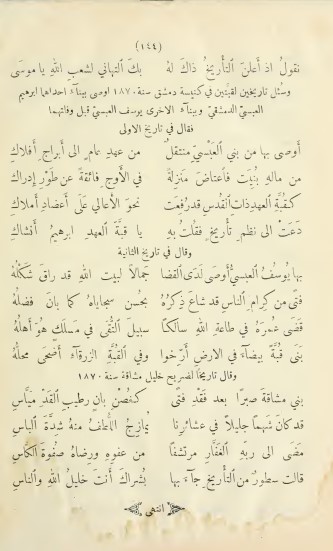 (١٤٤)
نقولُ اذ أعلنَ التأريخُ ذاكَ لهُ بكَ التهاني لشعبِ اللهِ يا موسى
وسُئل تاريخين لقبتين في كنيسة دمشق سنة ١٨٧٠ اوصى ببنآء احداهما ابرهيم
العبسيّ الدمشقي وببنآء الاخرى يوسف العبسيّ قبل وفاتهما
فقال في تاريخ الاولى
أوصى بها من بني العَبْسيّ منتقلٌ من عهدِ عامٍ الى أبراجِ أفلاكِ
من مالهِ بُنيَت فأعتاضَ منزلةً في الأوجِ فائقةً عن طَوْرِ إدراكِ
كقبَّةِ العهدِ ذاتِ القدسِ قد رُفعَت نحوَ الأعالي على أعضادِ أملاكِ
دَعَتْ الى نظمِ تأريخٍ فقلتُ بهِ يا قبَّةَ العهدِ ابرهيمُ أنشاكِ
وقال في تاريخ الثانية
بها يُوسُفُ العبسيُّ أوصى لدى القضا جَمالاً لبيت اللهِ قد راقَ شكلُهُ
فتًى من كرامِ الناسِ قد شاعَ ذكرُهُ بحُسن سجاياهُ كما بانَ فضلُهُ
قضى عُمرَهُ في طاعةِ اللهِ سالكًا سبيلَ التُّقى في مسلكٍ هوَ أهلُهُ
بَنى قبَّةً بيضآءَ في الارضِ أرَّخوا وفي القُبَّةِ الزرقآءِ أضحى محلُّهُ
وقال تاريخًا لضريح خليل مشاقة سنة ١٨٧٠
بني مشاقةَ صبرًا بعد فقدِ فتًى كغصنِ بانٍ رطيبِ القدّ ميَّاسِ
قد كانَ شهمًا جليلاً في عشائرِنا يمازجُ اللطفُ منهُ شدَّةَ الباسِ
مَضى الى ربّهِ الغفَّارِ مرتشفًا من عفوهِ ورضاهُ صفوةَ الكاسِ
قالت سطورٌ من التأريخِ جآءَ بها بُشراكَ أنتَ خليلُ اللهِ والناسِ
انتهى